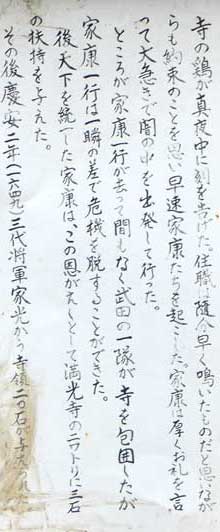 寺の鶏が真夜中に刻を告げた。住職は随分早く鳴いたものだと思いなが
らも約束のことを思い早速家康たちを起こした。家康は厚くお礼を言
って大急ぎで闇の中を出発して行った。
ところが家康一行が去って間もなく武田の一隊が寺を包囲したが
家康一行は一瞬の差で危機を脱することができた。
後天下を統一した家康は、この恩がえしとして満光寺のニワトリに三石
の扶持を与えた。
その後慶安二年(一六四九)三代将軍家光から寺領二〇石が与えられ